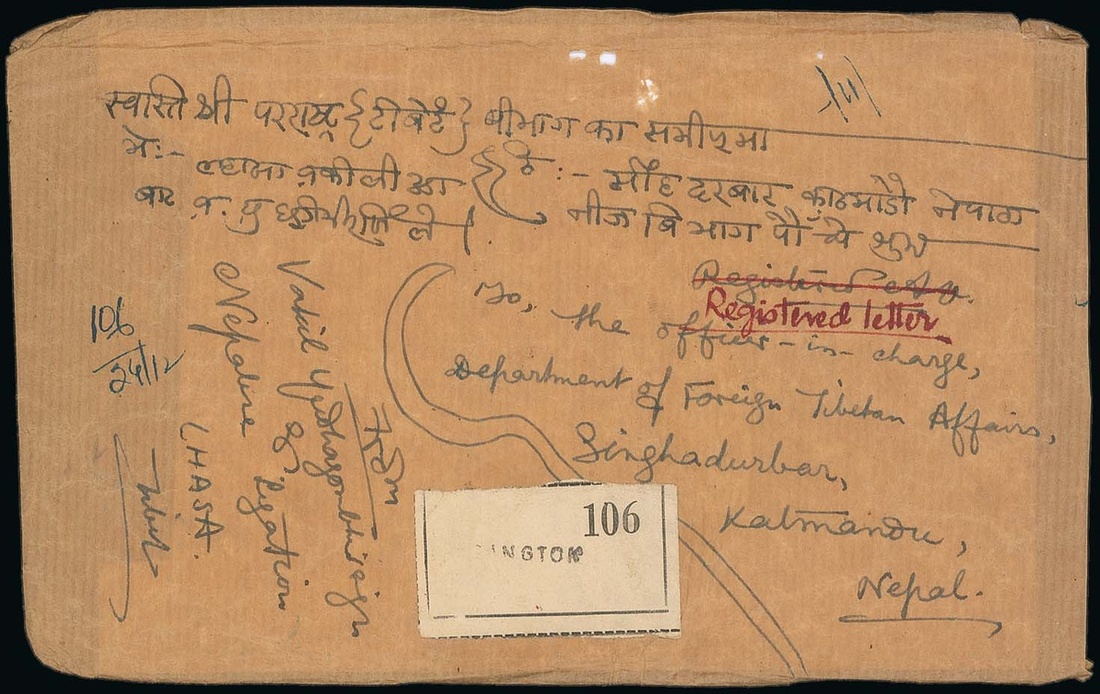 स्वस्ति श्री परराष्ट्र {टीवेट} बीभाग का समीपमा
मे:- ल्हासा वकीली अ
ठे:- सींह दरबार काठमाडौं नेपाल
बाट व. यु ले।
नीज बिभाग पौंचे शुभ
Registered
Registered letter
To,
the officer-in-charge,
Department of Foreign Tibetan Affairs,
Singhadurbar,
Katmandu,
Nepal.
From
Vakil Yudhagombhirsign
of legation
Nepalese
LHASA.
Tibet
106
24/12
106
INGTOK